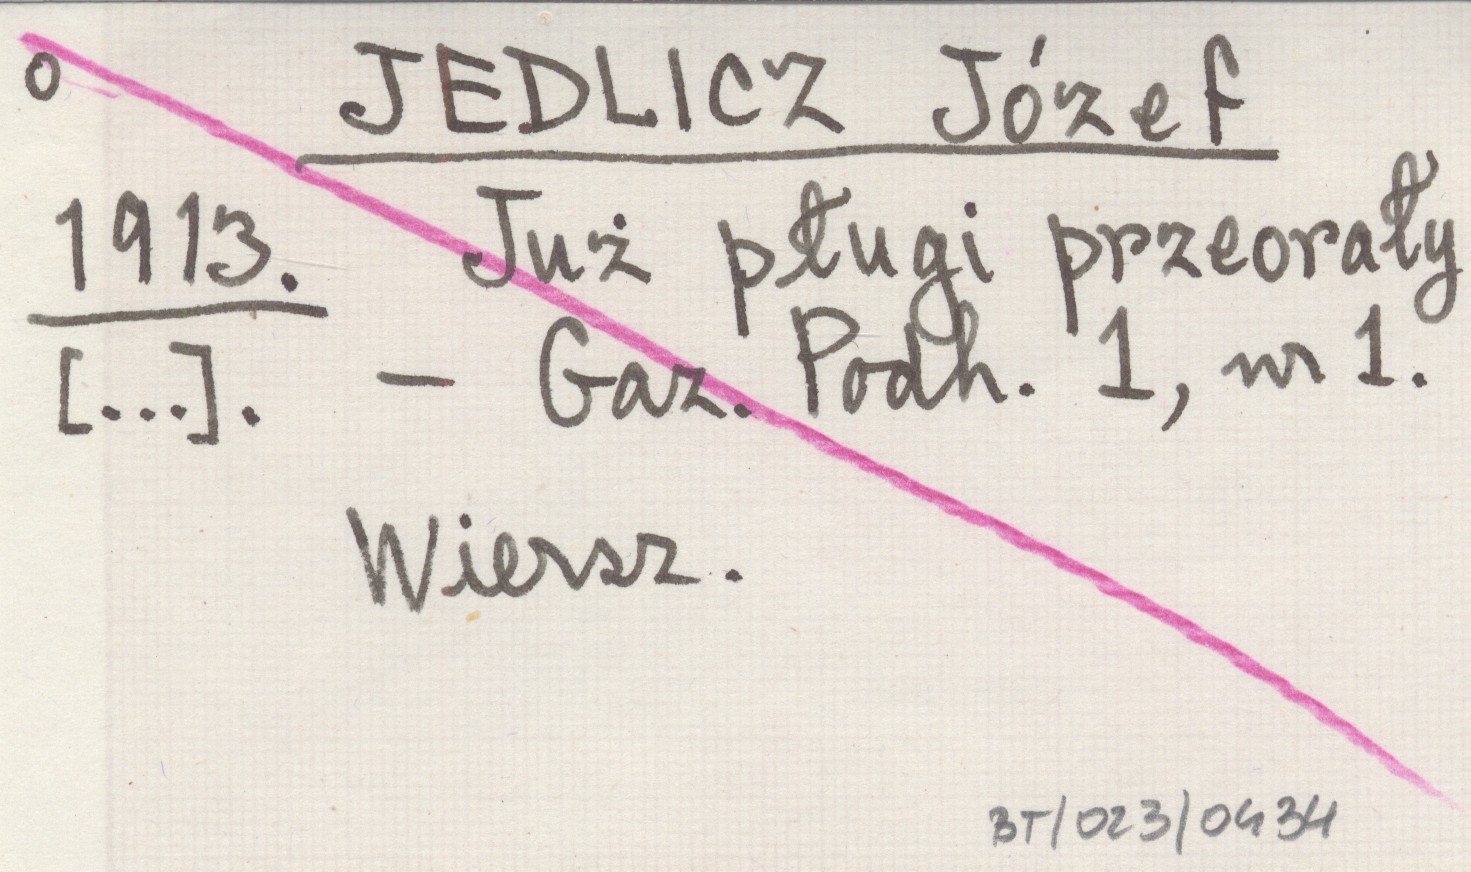 o JEDLICZ Józef
1913. Już pługi przeorały
[...]. — Gaz. Podh. 1, nr 1.
Wiersz.
BT/023/0434